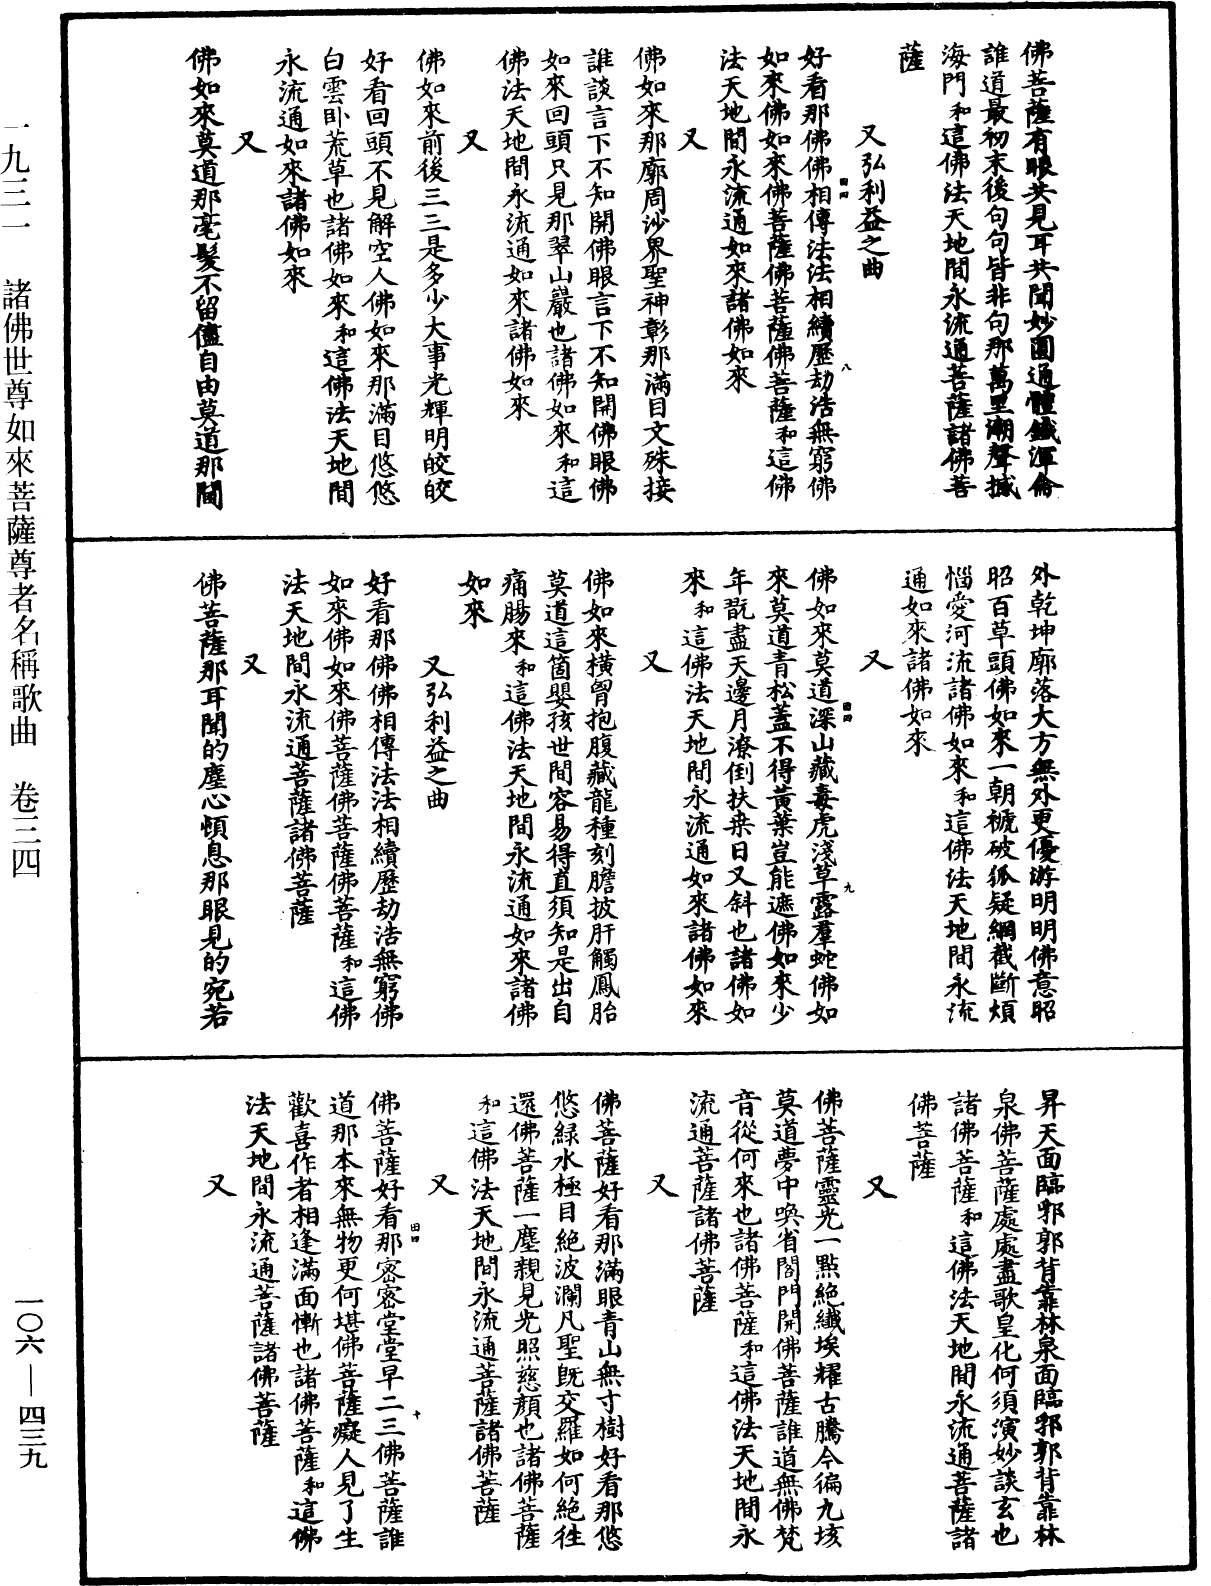 佛菩薩有眼共見耳共聞妙圓通體鐵渾侖
誰道最初末後句句皆非句那萬里潮聲撼
海門和這佛法天地間永流通菩薩諸佛菩
薩
又弘利益之曲
好看那佛佛相傳法法相續歷劫浩無窮佛
如來佛如來佛菩薩佛菩薩佛菩薩和這佛
法天地間永流通如來諸佛如來
又
佛如來那廓周沙界聖神彰那滿目文殊接
誰談言下不知開佛眼言下不知開佛眼佛
如來回頭只見那翠山巖也諸佛如來和這
佛法天地間永流通如來諸佛如來
又
佛如來前後三三是多少大事光輝明皎皎
好看回頭不見解空人佛如來那滿目悠悠
白雲臥荒草也諸佛如來和這佛法天地間
永流通如來諸佛如來
又
佛如來莫道那毫髮不留儘自由莫道那間
外乾坤廓落大方無外更優游明明佛意昭
昭百草頭佛如來一朝樾破狐疑網截斷煩
惱愛河流諸佛如來和這佛法天地間永流
通如來諸佛如來
又
佛如來莫道深山藏毒虎淺草露羣蛇佛如
來莫道青松蓋不得黃葉豈能遮佛如來少
年翫盡天邊月潦倒扶桑日又斜也諸佛如
來和這佛法天地間永流通如來諸佛如來
又
佛如來橫胷抱腹藏龍種刻膽披肝觸鳳胎
莫道這箇嬰孩世間容易得直須知是出自
痛腸來和這佛法天地間永流通如來諸佛
如來
又弘利益之曲
好看那佛佛相傳法法相續歷劫浩無窮佛
如來佛如來佛菩薩佛菩薩佛菩薩和這佛
法天地間永流通菩薩諸佛菩薩
又
佛菩薩那耳聞的塵心頓息那眼見的宛若
昇天面臨郭郭背靠林泉面臨郭郭背靠林
泉佛菩薩處處盡歌皇化何須演妙談玄也
諸佛菩薩和這佛法天地間永流通菩薩諸
佛菩薩
又
佛菩薩靈光一點絕纖埃耀古騰今徧九垓
莫道夢中喚省閣門開佛菩薩誰道無佛梵
音從何來也諸佛菩薩和這佛法天地間永
流通菩薩諸佛菩薩
又
佛菩薩好看那滿眼青山無寸樹好看那悠
悠綠水極目絕波瀾凡聖旣交羅如何絕徃
還佛菩薩一塵親見光照慈顏也諸佛菩薩
和這佛法天地間永流通菩薩諸佛菩薩
又
佛菩薩好看那密密堂堂早二三佛菩薩誰
道那本來無物更何堪佛菩薩癡人見了生
歡喜作者相逢滿面慚也諸佛菩薩和這佛
法天地間永流通菩薩諸佛菩薩
又
一九三一 諸佛世尊如來菩薩尊者名稱歌曲 卷三四
一〇六—四三九